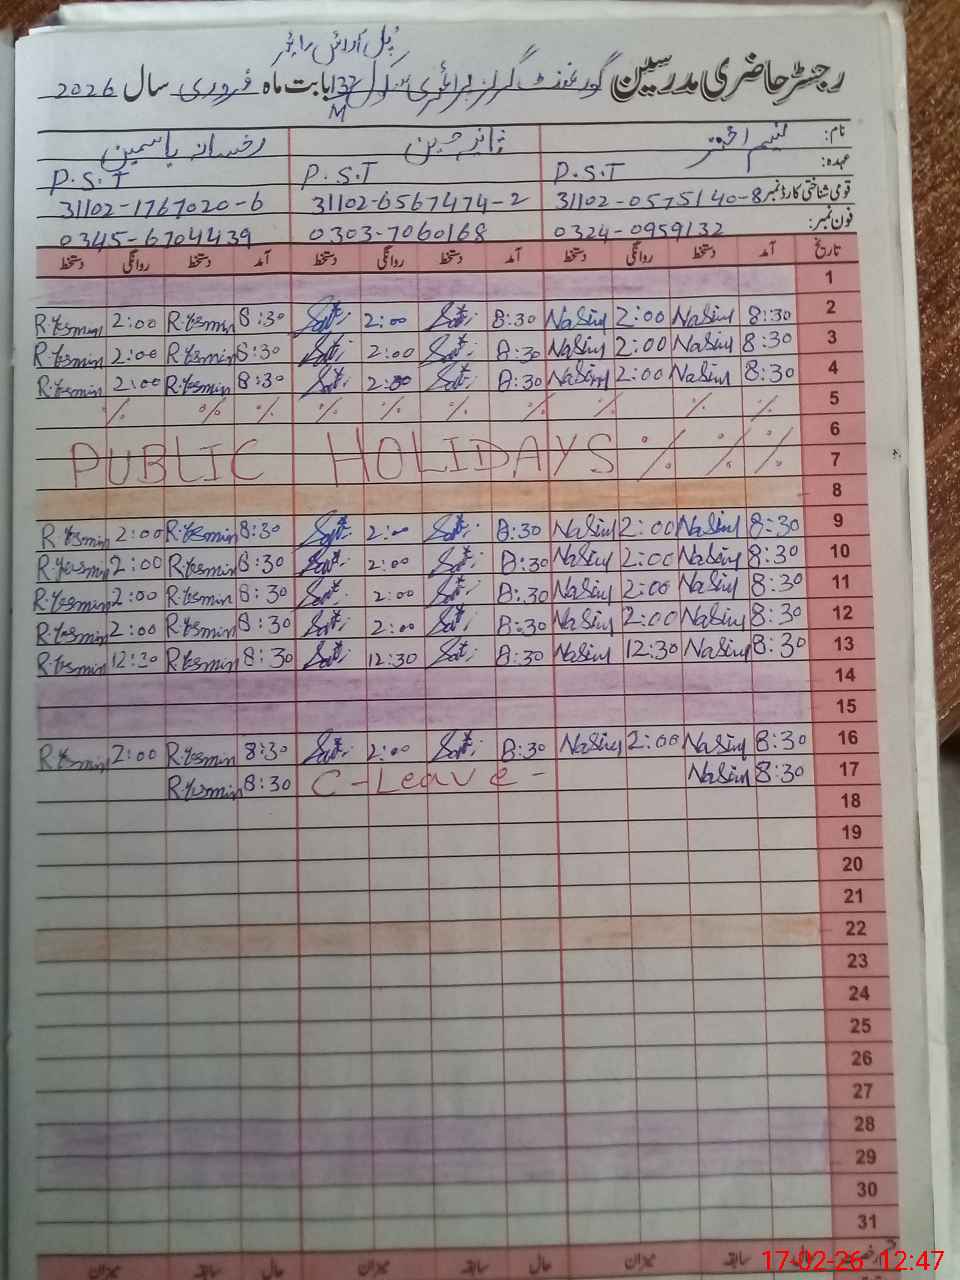 پل آرائیں راہ
رجسٹر حاضری مدرسین گورنمنٹ گرلز پرائمری سکول 132 بابت ماہ فروری سال 2026
M
نام: نسیم اختر رخسانہ یاسمین
عہدہ: P.S.T P.S.T P.S.T
قومی شناختی کارڈ نمبر 31102-0575140-8 31102-6567474-2 31102-1767020-6
فون نمبر: 0324-0959132 0303-7060168 0345-6704439
تاریخ آمد دستخط روانگی دستخط آمد دستخط روانگی دستخط آمد دستخط روانگی دستخط
1
2 8:30 Nasim 2:00 Nasim 8:30 2:00 8:30 R.Yesmin 2:00 R.Yesmin
3 8:30 Nasim 2:00 Nasim 8:30 2:00 8:30 R.Yesmin 2:00 R.Yesmin
4 8:30 Nasim 2:00 Nasim 8:30 2:00 8:30 R.Yesmin 2:00 R.Yesmin
5 % % % % % % % % % %
6
7 PUBLIC HOLIDAYS % % %
8
9 8:30 Nasim 2:00 Nasim 8:30 2:00 8:30 R.Yesmin 2:00 R.Yesmin
10 8:30 Nasim 2:00 Nasim 8:30 2:00 8:30 R.Yesmin 2:00 R.Yasmin
11 8:30 Nasim 2:00 Nasim 8:30 2:00 8:30 R.Yesmin 2:00 R.Yesmin
12 8:30 Nasim 2:00 Nasim 8:30 2:00 8:30 R.Yesmin 2:00 R.Yesmin
13 8:30 Nasim 12:30 Nasim 8:30 12:30 8:30 R.Yesmin 12:30 R.Yesmin
14
15
16 8:30 Nasim 2:00 Nasim 8:30 2:00 8:30 R.Yesmin 2:00 R.Yesmin
17 8:30 Nasim C-Leave- 8:30 R.Yesmin
18
19
20
21
22
23
24
25
26
27
28
29
30
31
سابقہ میزان حال سابقہ میزان حال سابقہ میزان
17-02-26 12:47